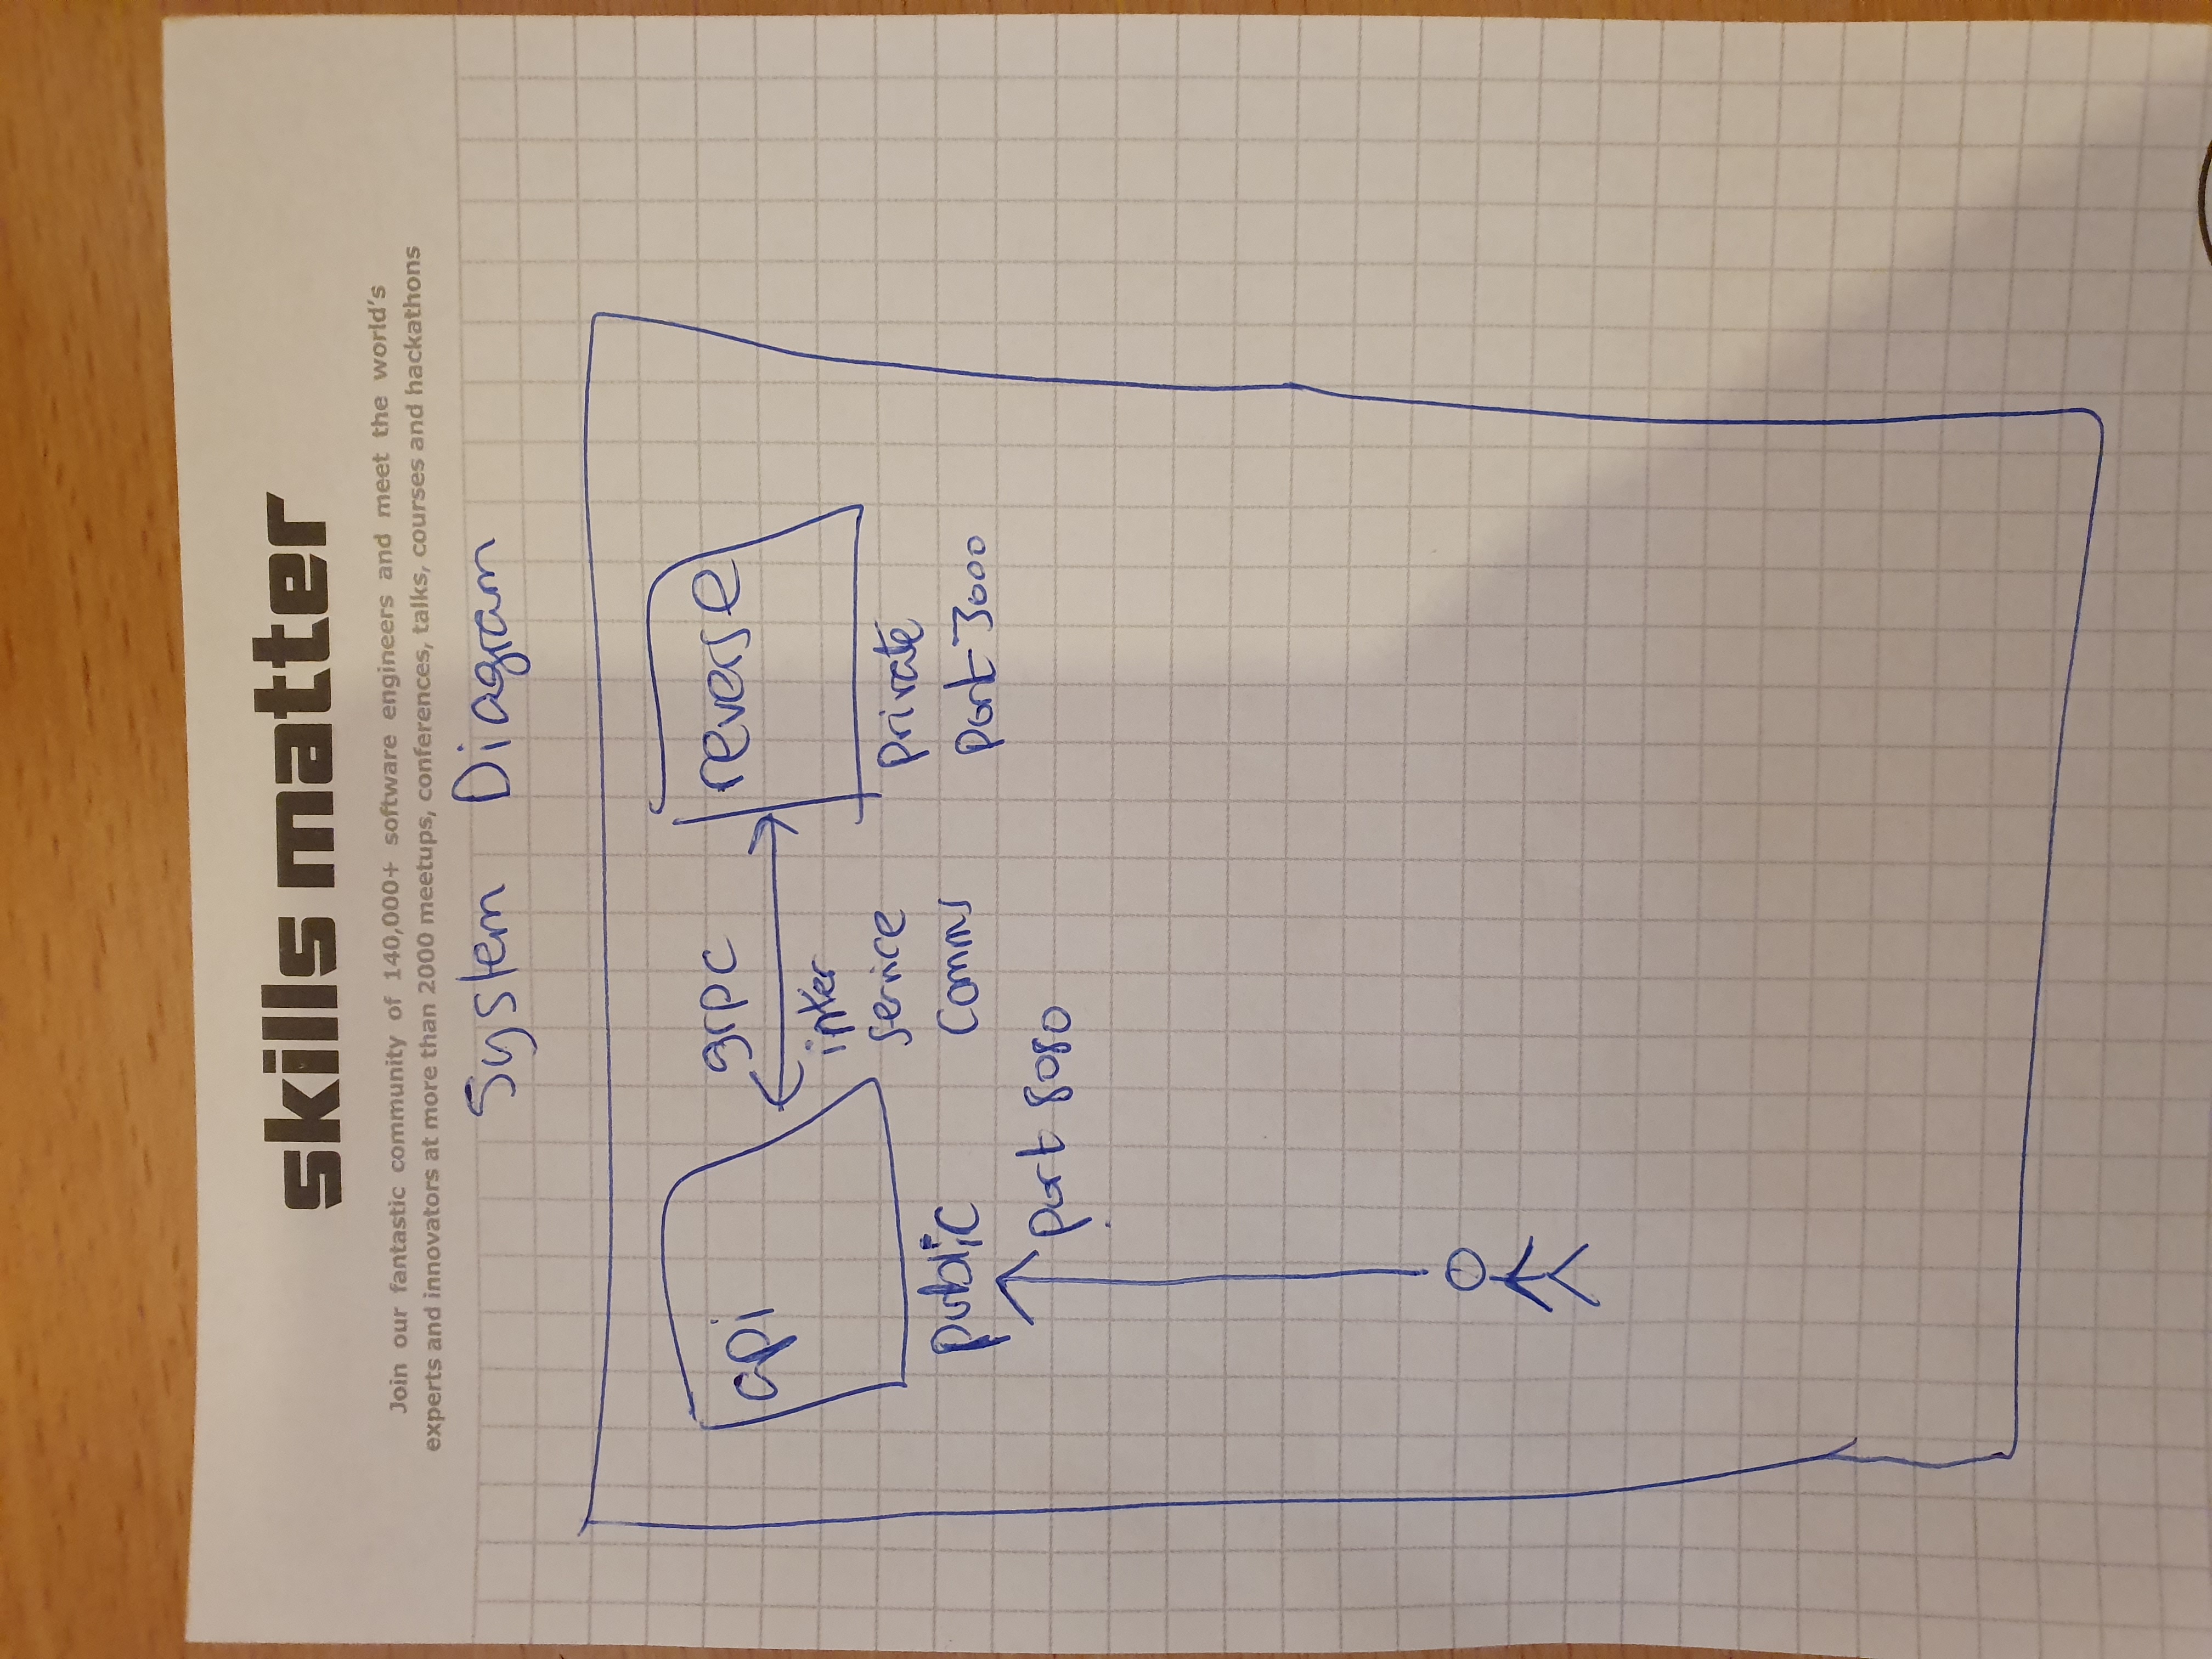 skills matter
Join our fantastic community of 140,000+ software engineers and meet the world's
experts and innovators at more than 2000 meetups, conferences, talks, courses and hackathons
System Diagram
api
grpc
inter
service
comms
reverse
public
private
port 3000
port 8080